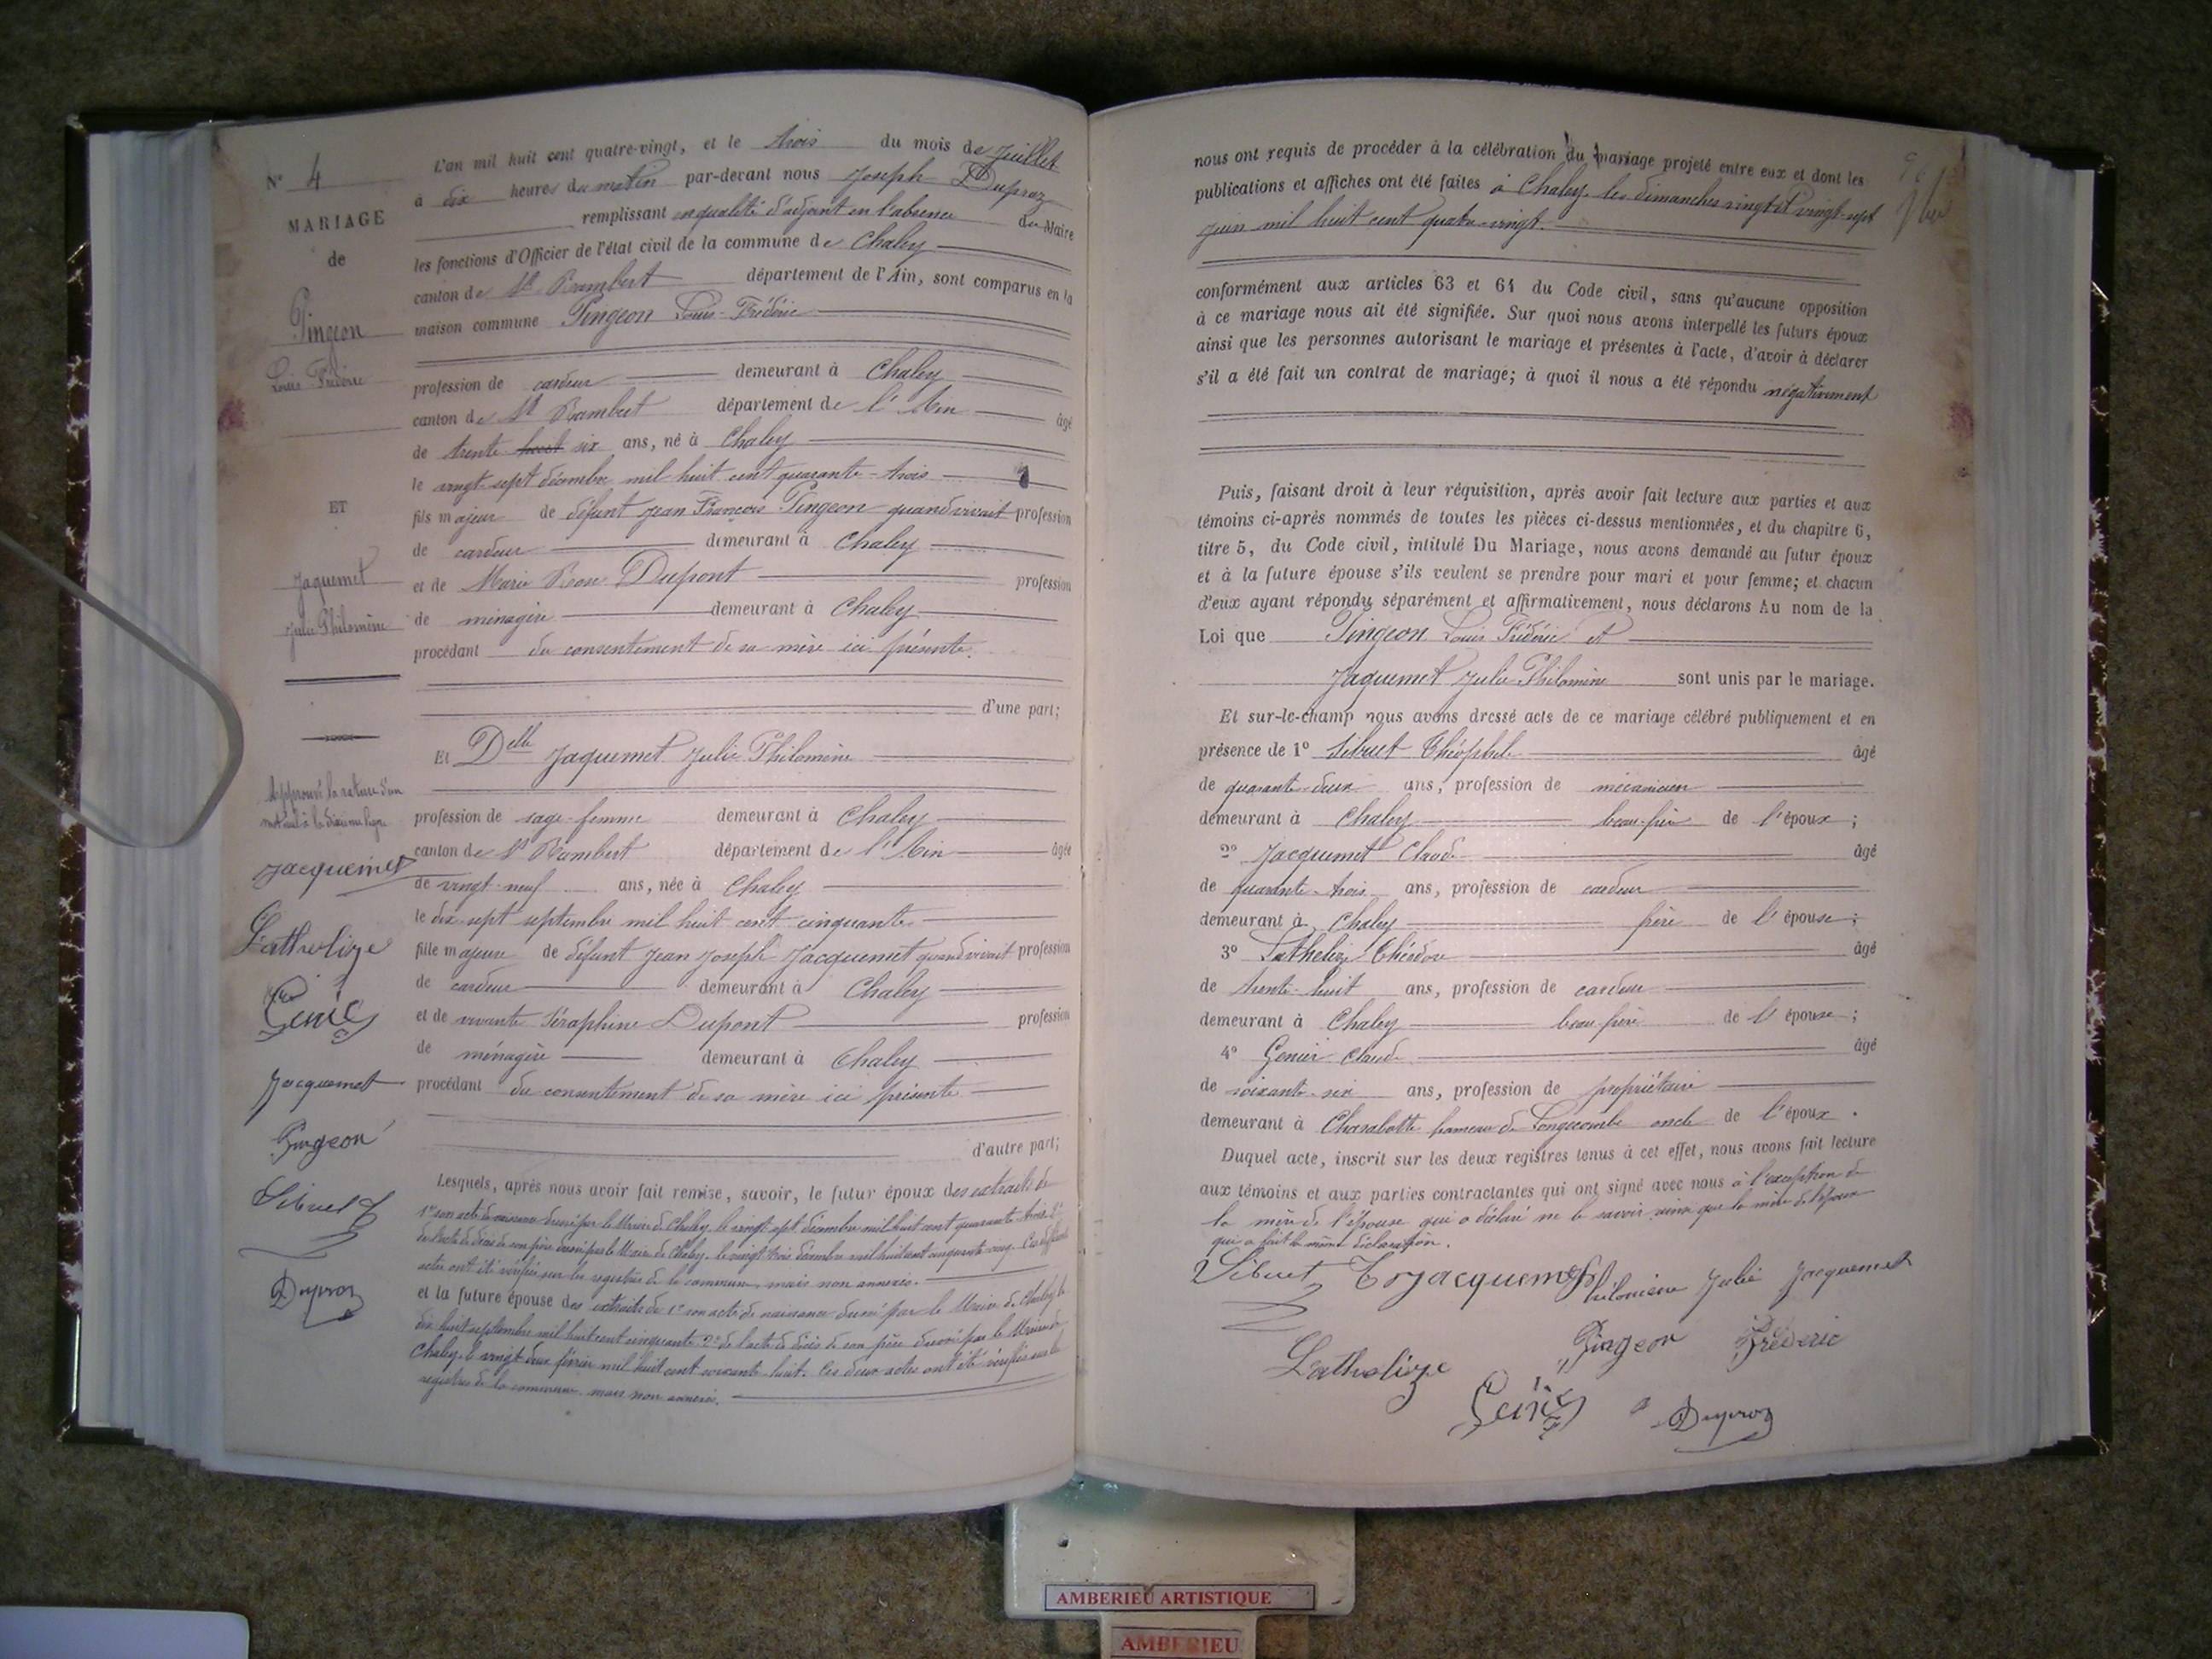 N° 4
MARIAGE
de
Pingeon
Louis Frédéric
ET
Jaquemet
Julie Philomène
Approuvé la rature d'un
mot nul à la dixième ligne
Jacquemet
Lathelize
Jacquemet
Pingeon
Sibuet
Dupraz
L'an mil huit cent quatre-vingt, et le trois du mois de Juillet
à dix heures du matin par-devant nous Joseph Dupraz
remplissant en qualité d'adjoint en l'absence du Maire
les fonctions d'Officier de l'état civil de la commune de Chaley
canton de St Rambert département de l'Ain, sont comparus en la
maison commune Pingeon Louis-Frédéric
profession de cardeur demeurant à Chaley
canton de St Rambert département de l'Ain âgé
de trente huit six ans, né à Chaley
le vingt-sept décembre mil huit cent quarante-trois
fils majeur de défunt Jean François Pingeon quand vivait profession
de cardeur demeurant à Chaley
et de Marie Rose Dupont profession
de ménagère demeurant à Chaley
procédant du consentement de sa mère ici présente.
d'une part;
Et Delle Jaquemet Julie Philomène
profession de sage-femme demeurant à Chaley
canton de St Rambert département de l'Ain âgée
de vingt-neuf ans, née à Chaley
le dix-sept septembre mil huit cent cinquante
fille majeure de défunt Jean Joseph Jacquemet quand vivait profession
de cardeur demeurant à Chaley
et de vivante Séraphine Dupont profession
de ménagère demeurant à Chaley
procédant du consentement de sa mère ici présente
d'autre part;
Lesquels, après nous avoir fait remise, savoir, le futur époux des extraits de
1° son acte de naissance dressé par le Maire de Chaley, le vingt-sept décembre mil huit cent quarante-trois. 2°
de l'acte de décès de son père dressé par le Maire de Chaley, le vingt trois décembre mil huit cent cinquante-cinq. Ces
actes ont été vérifiés sur les registres de la commune, mais non annexés.
et la future épouse des extraits de 1° son acte de naissance dressé par le Maire de Chaley le
dix huit septembre mil huit cent cinquante 2° de l'acte de décès de son père dressé par le Maire de
Chaley, le vingt deux février mil huit cent soixante huit. Ces deux actes ont été vérifiés sur les
registres de la commune mais non annexés.
nous ont requis de procéder à la célébration du mariage projeté entre eux et dont les
publications et affiches ont été faites à Chaley les dimanches vingt et vingt-sept
juin mil huit cent quatre-vingt.
conformément aux articles 63 et 64 du Code civil, sans qu'aucune opposition
à ce mariage nous ait été signifiée. Sur quoi nous avons interpellé les futurs époux
ainsi que les personnes autorisant le mariage et présentes à l'acte, d'avoir à déclarer
s'il a été fait un contrat de mariage; à quoi il nous a été répondu négativement
Puis, faisant droit à leur réquisition, après avoir fait lecture aux parties et aux
témoins ci-après nommés de toutes les pièces ci-dessus mentionnées, et du chapitre 6,
titre 5, du Code civil, intitulé Du Mariage, nous avons demandé au futur époux
et à la future épouse s'ils veulent se prendre pour mari et pour femme; et chacun
d'eux ayant répondu séparément et affirmativement, nous déclarons Au nom de la
Loi que Pingeon Louis Frédéric et
Jaquemet Julie-Philomène sont unis par le mariage.
Et sur-le-champ nous avons dressé acte de ce mariage célébré publiquement et en
présence de 1° Sibuet Théophile âgé
de quarante-deux ans, profession de mécanicien
demeurant à Chaley beau-frère de l'époux;
2° Jacquemet Claude âgé
de quarante-trois ans, profession de cardeur
demeurant à Chaley frère de l'épouse;
3° Lathelize Théodore âgé
de trente-huit ans, profession de cardeur
demeurant à Chaley beau-frère de l'épouse;
4° Genier Claude âgé
de soixante-six ans, profession de propriétaire
demeurant à Charabotte hameau de Longecombe oncle de l'époux.
Duquel acte, inscrit sur les deux registres tenus à cet effet, nous avons fait lecture
aux témoins et aux parties contractantes qui ont signé avec nous à l'exception de
la mère de l'épouse qui a déclaré ne le savoir ainsi que la mère de l'époux
qui a fait la même déclaration.
Sibuet Jacquemet Philomène Julie Jacquemet
Lathelize Pingeon Fréderic
Dupraz
AMBERIEU ARTISTIQUE
AMBERIEU